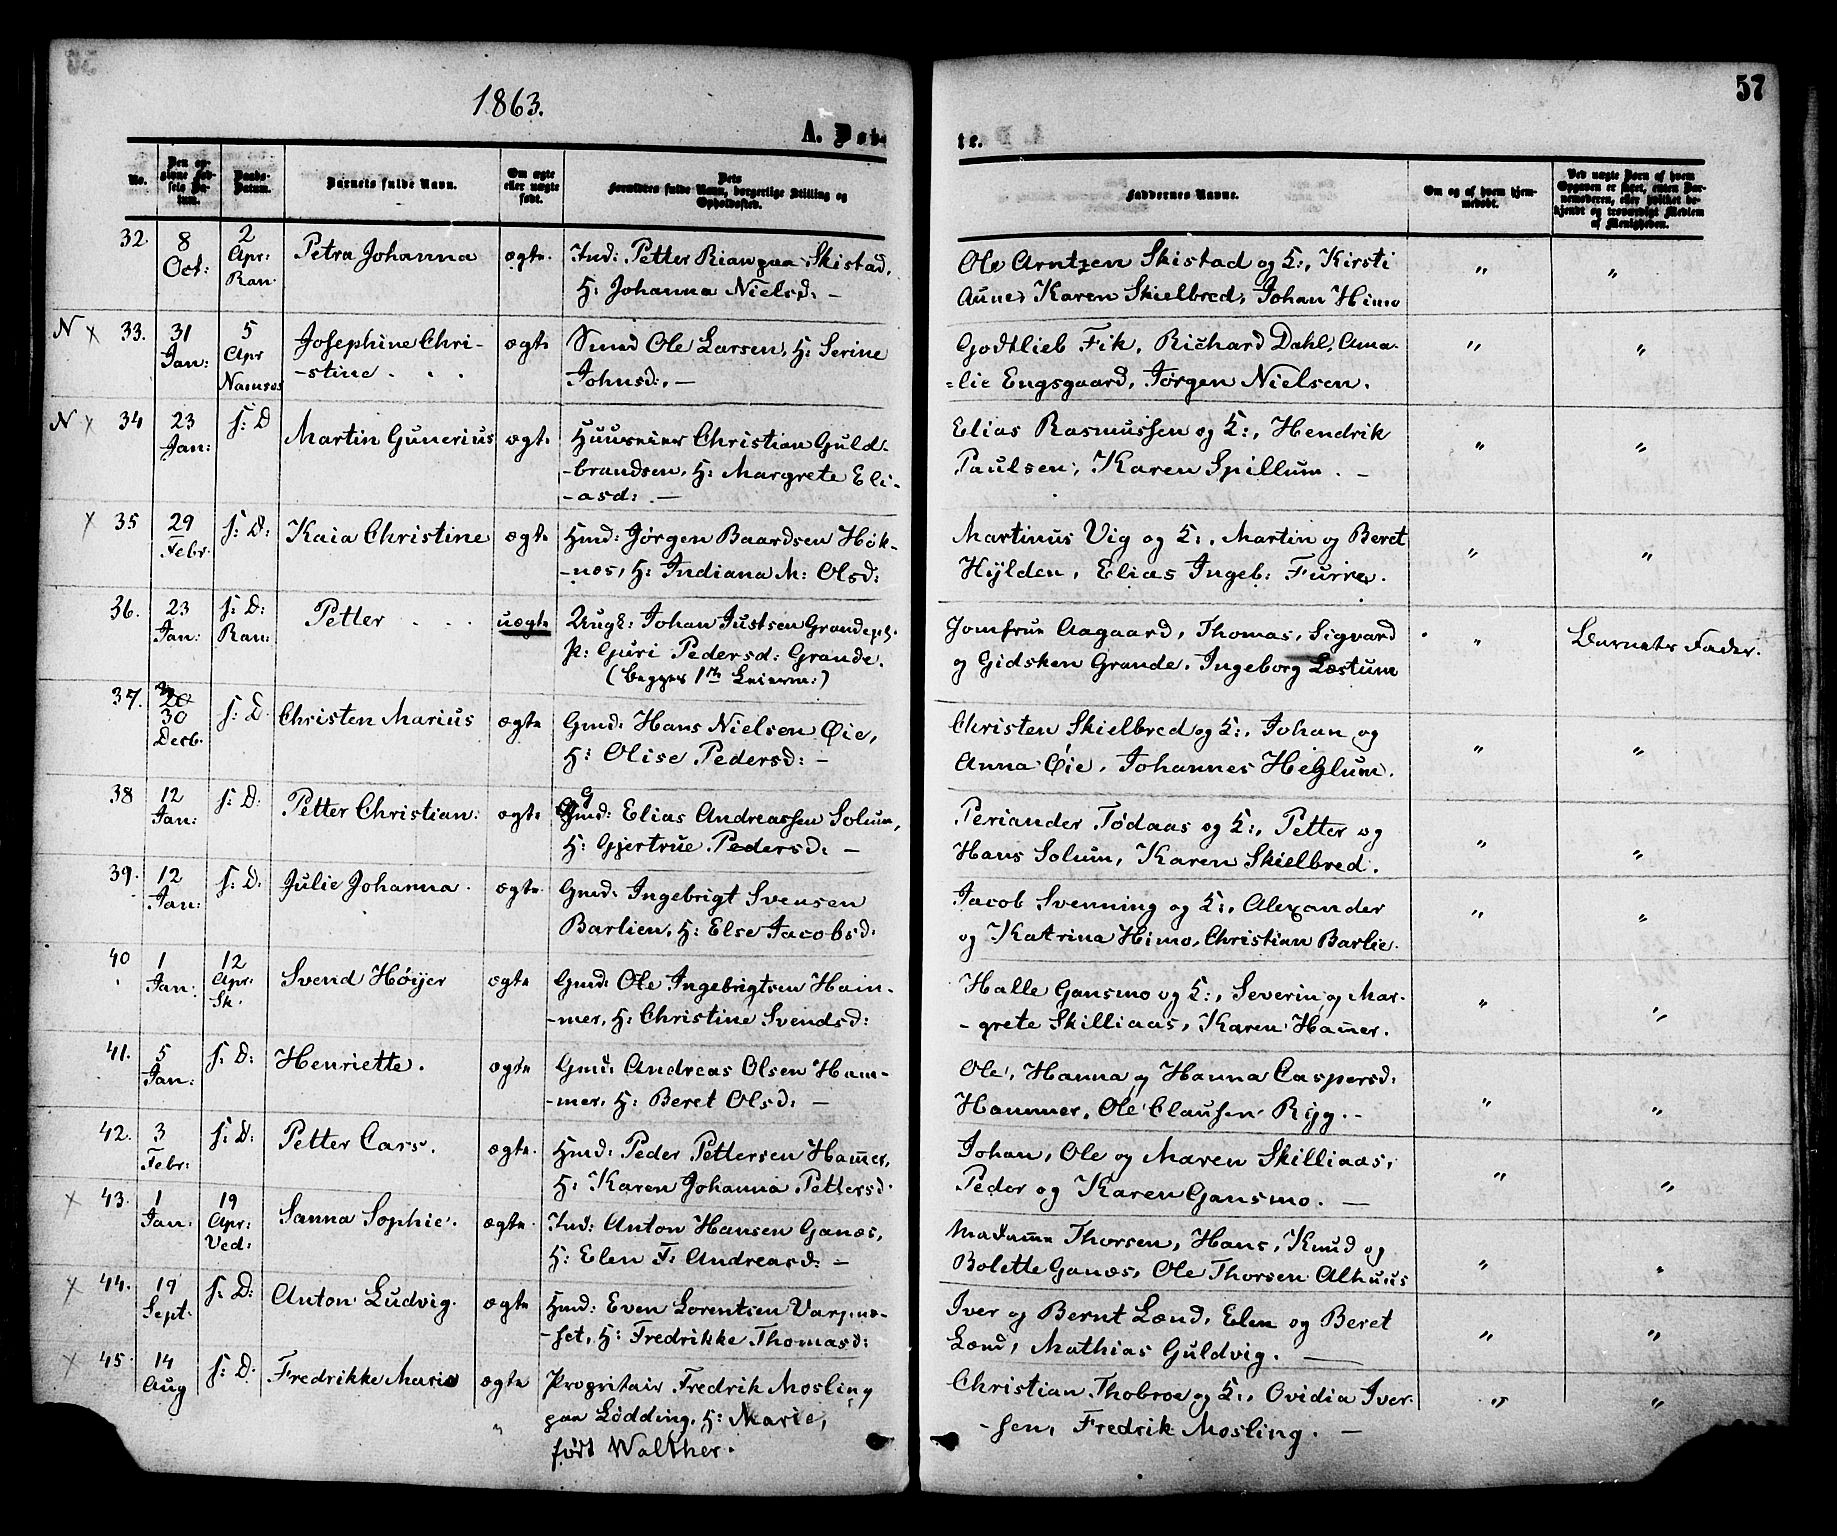 57
1863.
A. Døb-
te.
No.
Den op-
givne Fød-
sels Da-
tum.
Daabs-
Datum.
Barnets fulde Navn.
Om ægte
eller uægte
født.
Dets
Forældres fulde Navn, borgerlige Stilling og
Opholdssted.
Faddernes Navne.
Om og af hvem hjem-
medøbt.
Ved uægte Børn af hvem
Opgaven er skeet, enten Bar-
nemoderen, eller hvilket be-
kjendt og troværdigt Medlem
af Menigheden.
32. 8 Oct: 2 Apr: Ran. Petra Johanna ægte. Ind: Petter Rian paa Skistad, Ole Arntzen Skistad og K:, Kirsti " "
H: Johanna Nielsd: - Aune, Karen Skielbred, Johan Himo
N x 33. 31 Jan: 5 Apr Namsos Josephine Chri- ægte Smed Ole Larsen, H: Serine Godtlieb Fik, Richard Dahl, Ama- " "
-stine . . . Johnsd:, - =lie Engsgaard, Jørgen Nielsen.
N x 34 23 Jan: s: D Martin Gunerius ægte Huusmand Christian Guld- Elias Rasmussen og K:, Hendrik " "
-brandsen, H: Margrete Eli- Paulsen, Karen Spillum. -
-asd: . -
x 35 29 Febr. s: D: Kaia Christine ægte Hmd: Jørgen Baardsen Høk- Martinus Vig og K:, Martin og Beret " "
-nes, H: Indiana M: Olsd: Hylden, Elias Ingeb: Furre.
36. 23 Jan: s: D: Ran: Petter . . . uægte Ungk: Johan Justsen Grandepl. Jomfrue Aagaard, Thomas, Sigvard " Barnets Fader.
P: Guri Pedersd: Grande. og Gidsken Grande, Ingeborg Læstum
(begges 1ste Leierm:)
37. 30 Decb. s: D. Christen Marius ægte Gmd: Hans Nielsen Øie, Christen Skielbred og K:, Johan og " "
H: Olise Pedersd: - Anna Øie, Johannes Heglum.
38 12 Jan: s: D: Petter Christian: ægte Gmd: Elias Andreassen Solum, Periander Tødaas og K:, Petter og " "
H: Gjertrue Pedersd: - Hans Solum, Karen Skielbred.
39. 12 Jan: s: D: Julie Johanna. ægte. Gmd: Ingebrigt Svensen Jacob Svenning og K:, Alexander " "
Barlien, H: Else Jacobsd: og Katrina Himo, Christian Barlie.
40 1 Jan: 12 Apr: Sk. Svend Høyer ægte Gmd: Ole Ingebrigtsen Ham- Halle Gansmo og K:, Severin og Mar- " "
-mer, H: Christine Svendsd: -grete Skilliaas, Karen Hamer.
41. 5 Jan: s: D: Henriette. ægte Gmd: Andreas Olsen Ham- Ole, Hanna og Hanna Caspersd: " "
-mer, H: Beret Olsd: - Hammer, Ole Clausen Ryg. -
42. 3 Febr: s: D: Petter Cars. ægte. Hmd: Peder Pettersen Hamer, Johan, Ole og Maren Skilliaas, " "
H: Karen Johanna Pettersd. Peder og Karen Gansmo. -
x 43. 1 Jan: 19 Apr: Ved: Sanna Sophie. ægte. Ind: Anton Hansen Ganæs, Madame Thorsen, Hans, Knud og " "
H: Elen F: Andreasd: - Bolette Ganæs, Ole Thorsen Alhuus
x 44. 19 Sept. s: D: Anton Ludvig. ægte Hmd: Even Lorentsen Varpne- Iver og Bernt Lænd, Elen og Beret " "
-set, H: Fredrikke Thomasd: Lænd, Mathias Guldvig. -
x 45. 14 Aug s: D: Fredrikke Marie ægte Propritair Fredrik Mosling Christian Thobroe og K:, Ovidia Iver- " "
paa Lødding, H: Marie, -sen, Fredrik Mosling. -
født Walther.